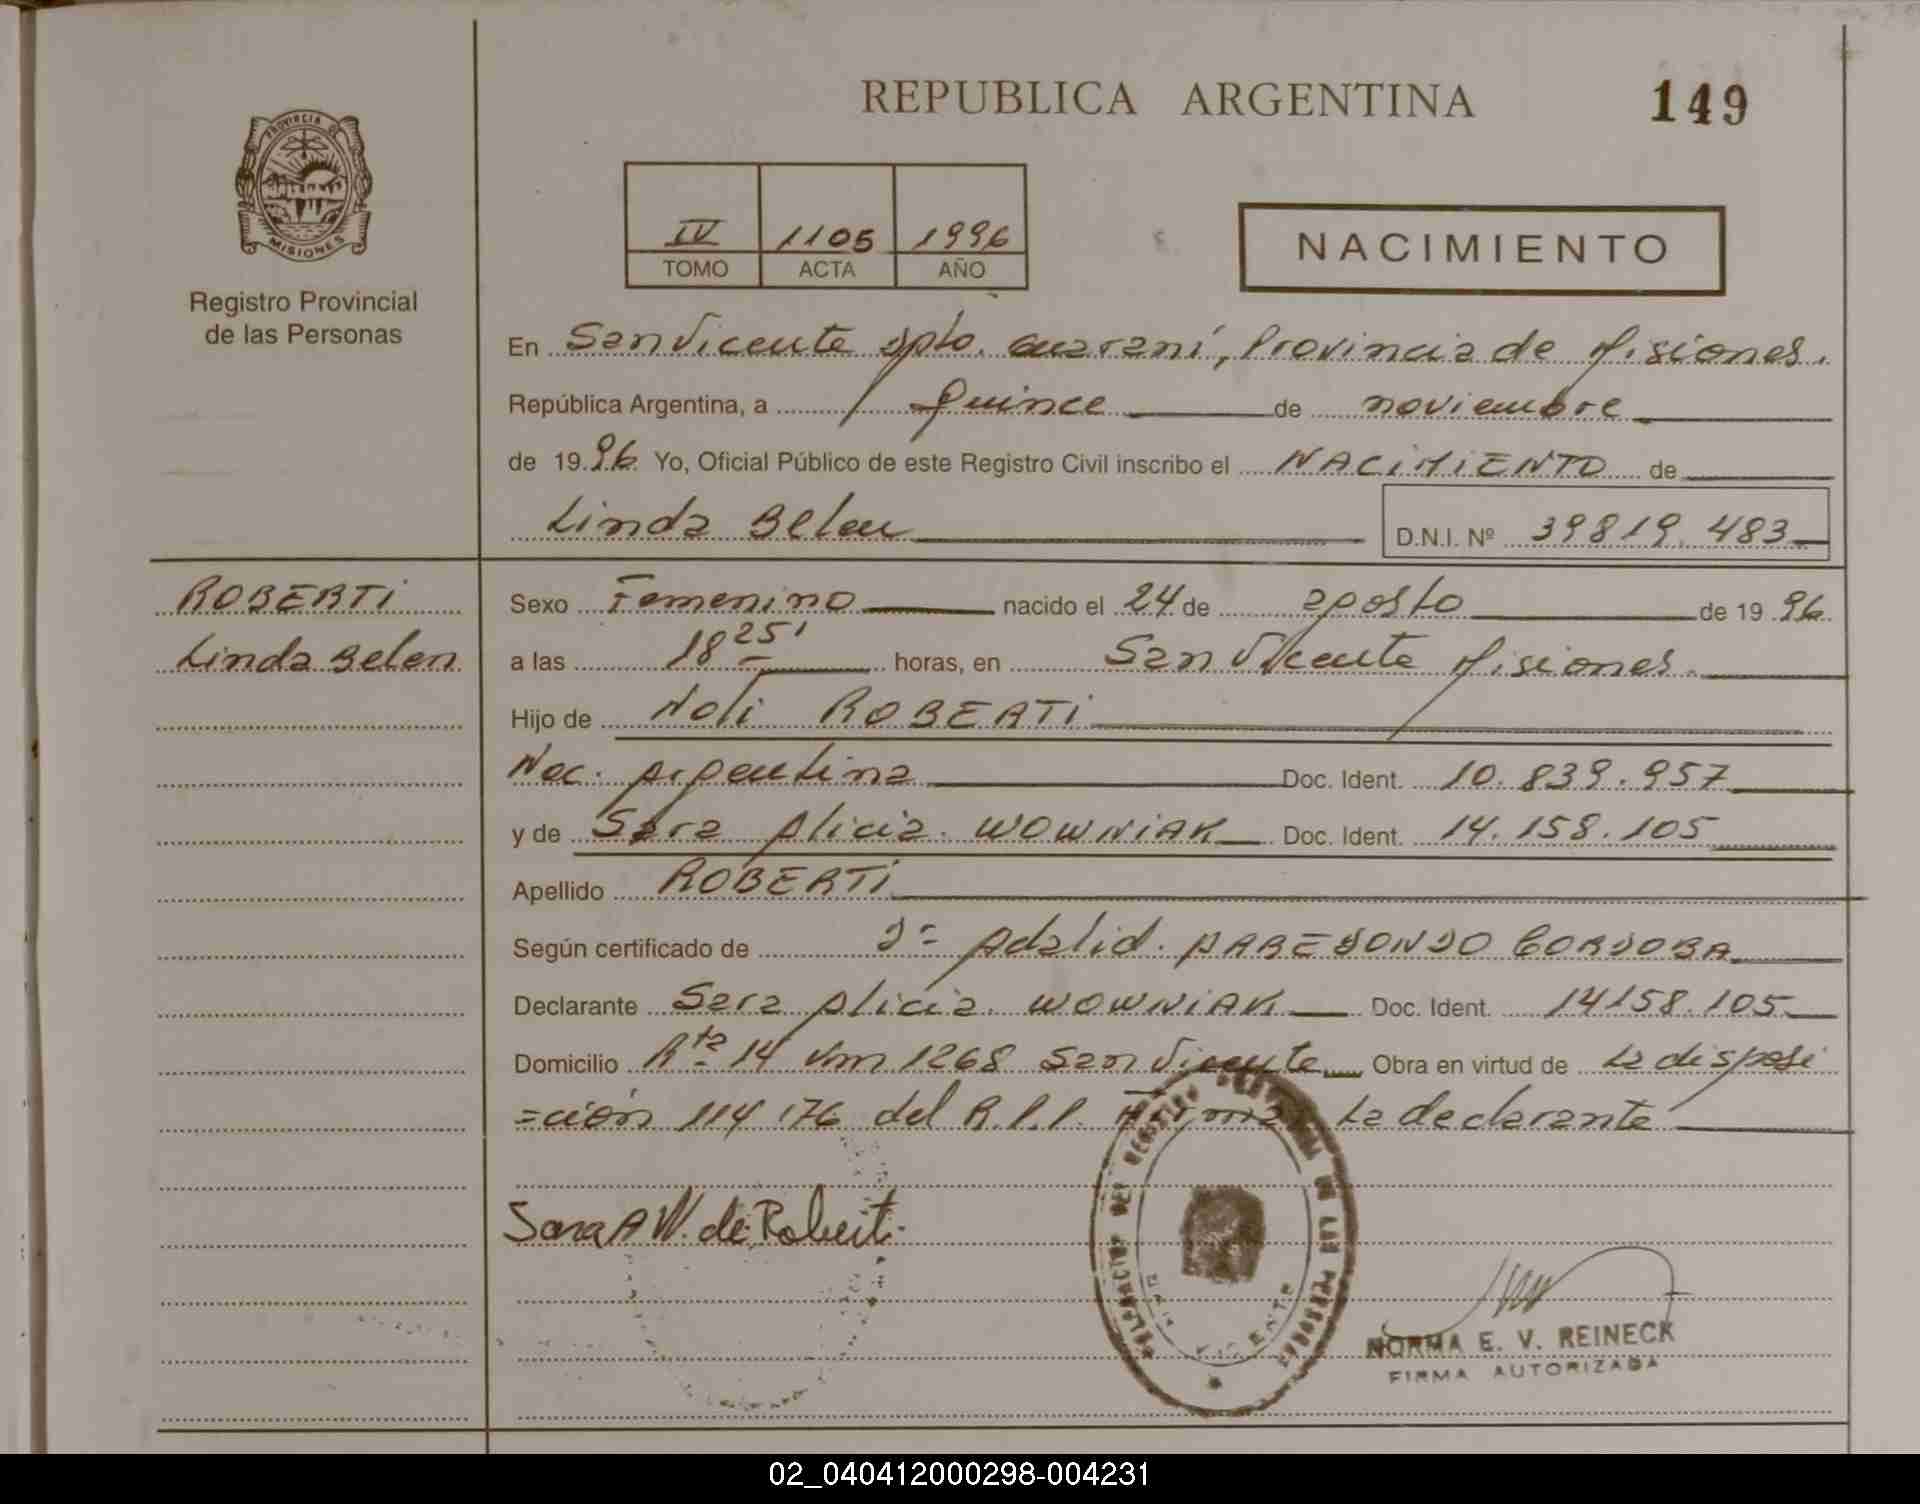 REPUBLICA ARGENTINA
149
PROVINCIA DE
MISIONES
Registro Provincial
de las Personas
IV 1105 1996
TOMO ACTA AÑO
NACIMIENTO
En San Vicente Dpto. Guaraní, Provincia de Misiones.
República Argentina, a quince de noviembre
de 1996 Yo, Oficial Público de este Registro Civil inscribo el NACIMIENTO de
Linda Belen D.N.I. Nº 39819.483
ROBERTI
Linda Belen
Sexo Femenino nacido el 24 de agosto de 1996
a las 18 25' horas, en San Vicente Misiones.
Hijo de Noli ROBERTI
Nac. Argentina Doc. Ident. 10.839.957
y de Sara Alicia WOWNIAK Doc. Ident. 14.158.105
Apellido ROBERTI
Según certificado de Dº Adalid. CORDOBA
Declarante Sara Alicia WOWNIAK Doc. Ident. 14158.105
Domicilio Rta 14 Km 1268 San Vicente Obra en virtud de La disposi
=ción 114/76 del R.P.P. Firma: La declarante
Sara A W. de Roberti
DE LAS PERSONAS
VICENTE
NORMA E. V. REINECK
FIRMA AUTORIZADA
02_040412000298-004231